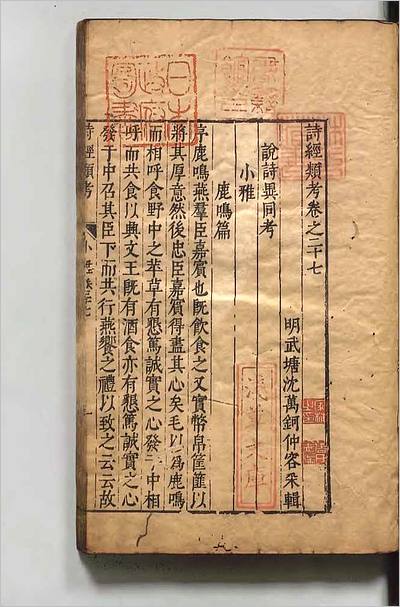 詩經類考卷之二十七
明武塘沈萬鈳仲容釆輯
說詩異同考
小雅
鹿鳴篇
序鹿鳴燕羣臣嘉賓也旣飲食之又實幣帛筐篚以
將其厚意然後忠臣嘉賓得盡其心矣毛以爲鹿鳴
而相呼食野中之苹草有懇篤誠實之心發于中相
呼而共食以興文王旣有酒食亦有懇篤誠實之心
發于中召其臣下而共行燕饗之禮以致之云云故
詩經類考
小雅
日本
政府
圖書
淺草文庫